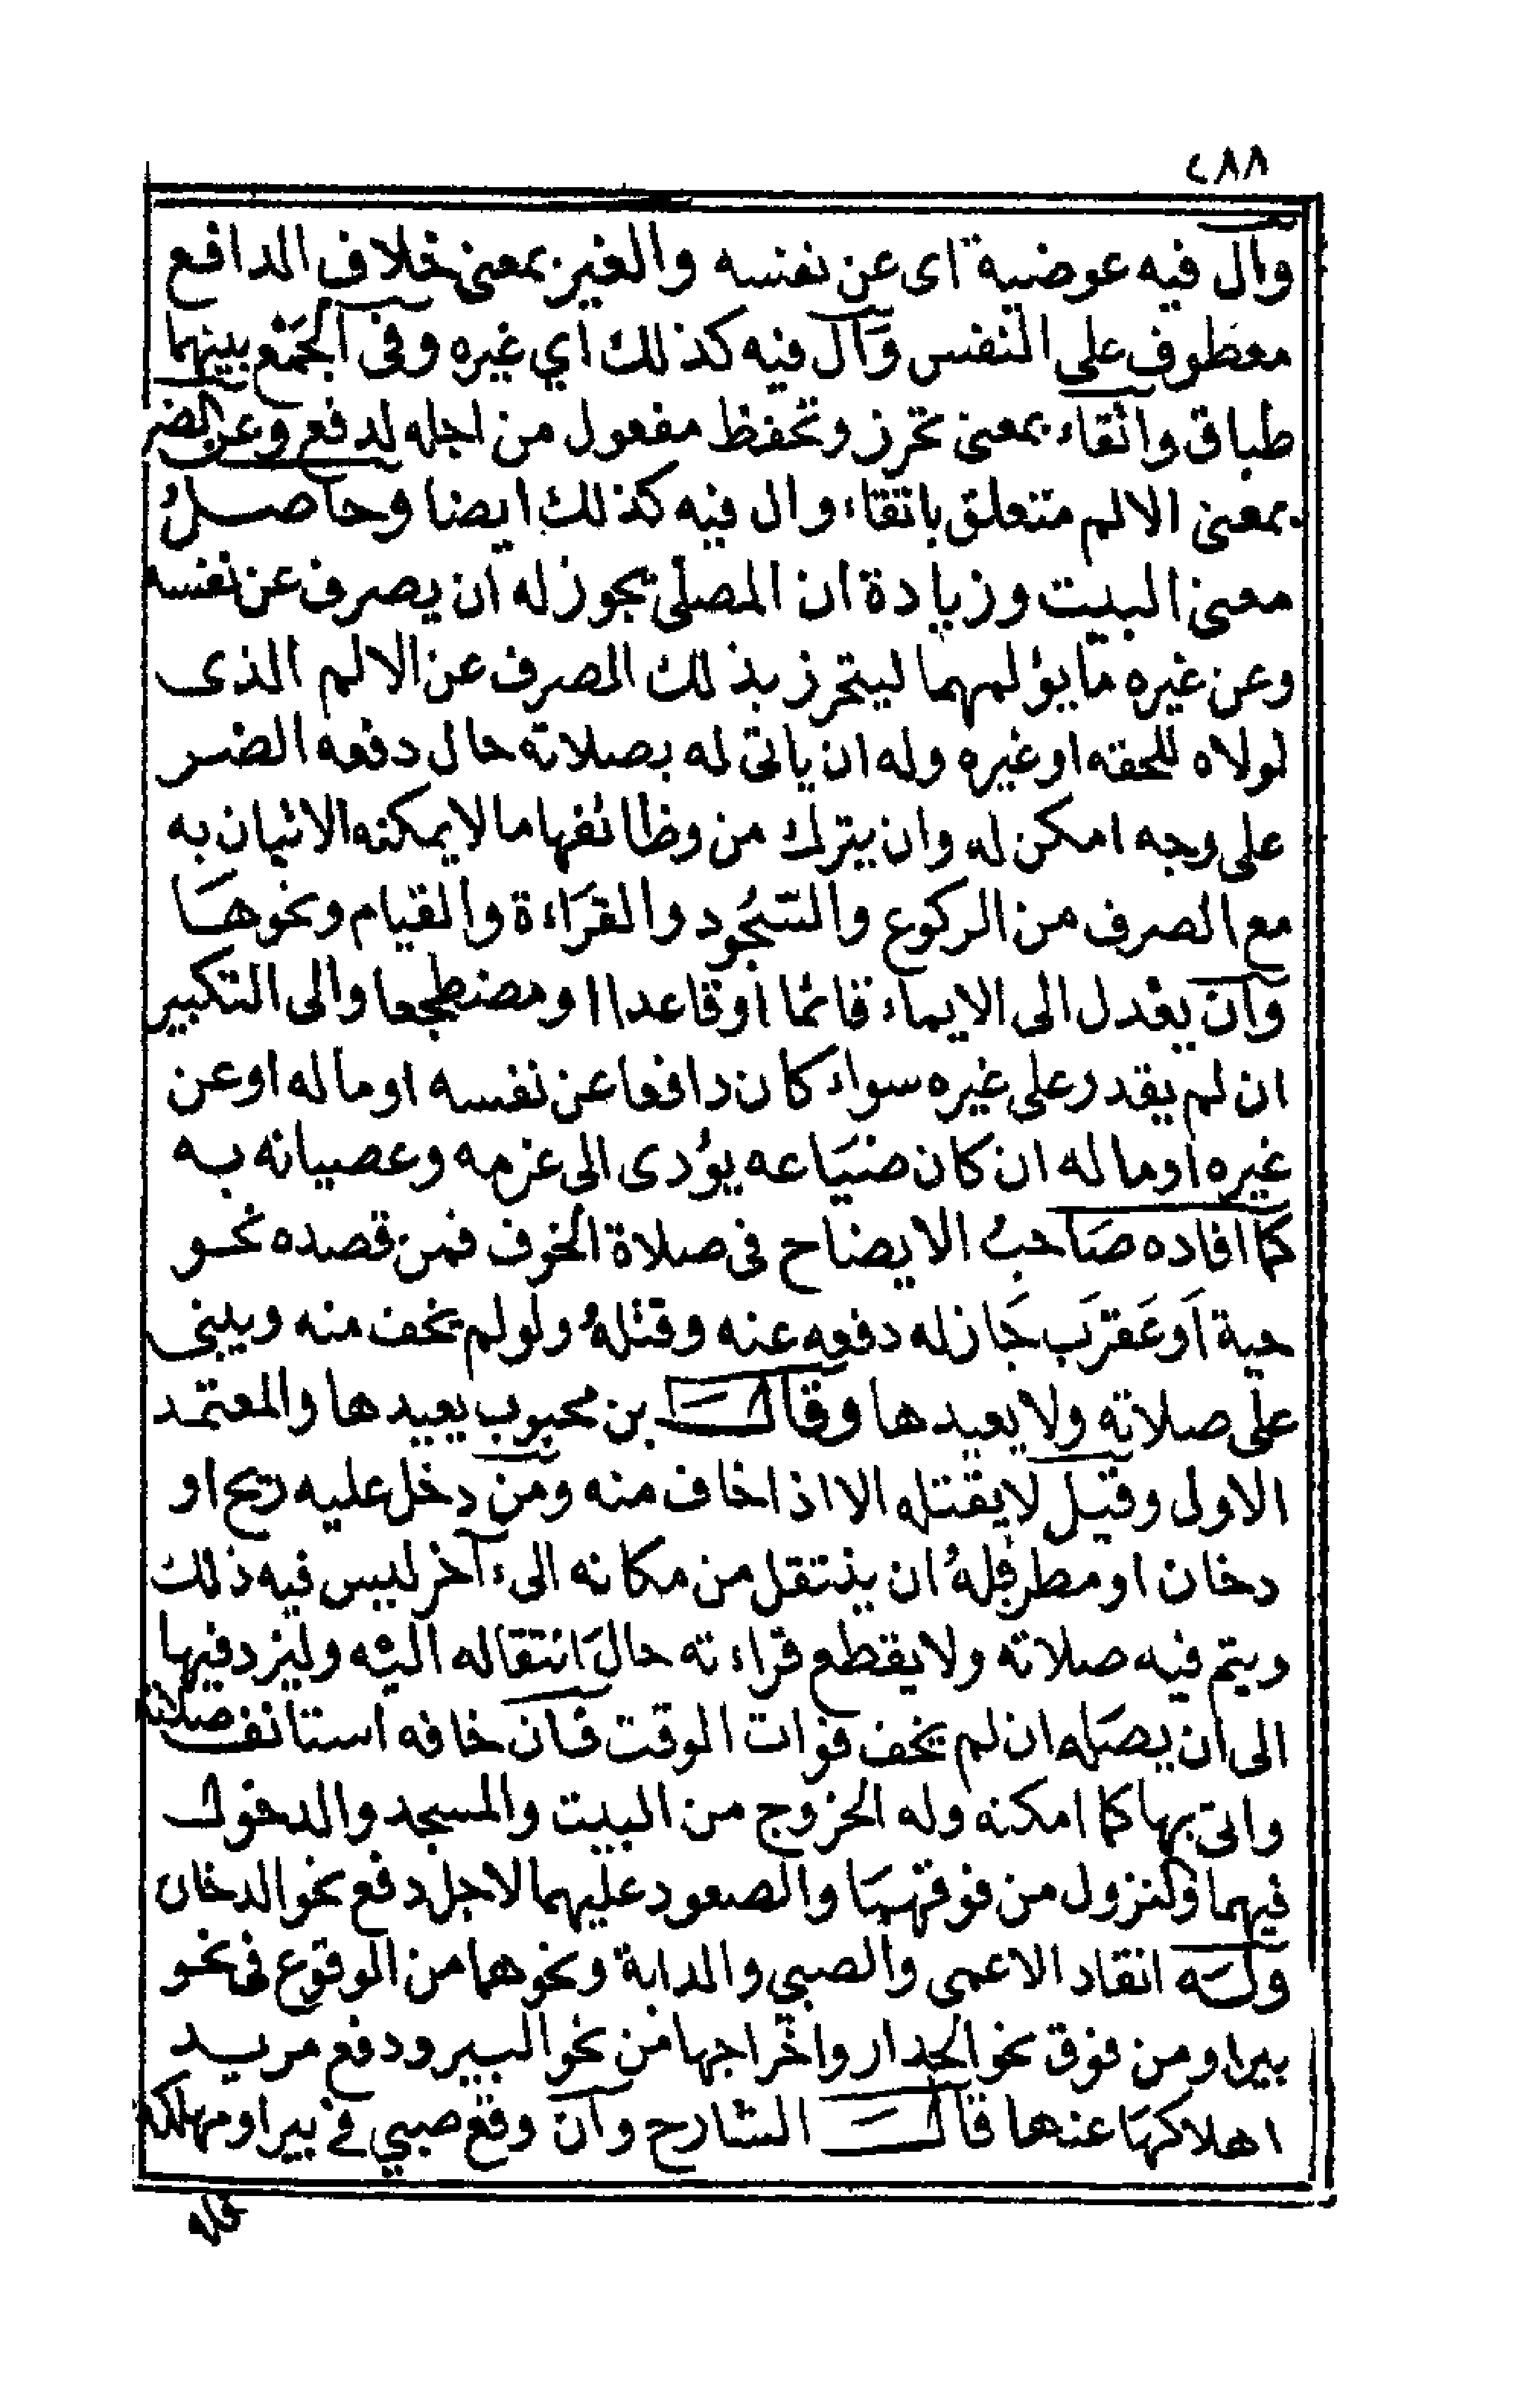 ٢٨٨
وال فيه عوضية اى عن نفسه والغير بمعنى خلاف الدافع
معطوف على النفس وال فيه كذلك أي غيره وفى الجمع بينهما
طباق واتقاء بمعنى تحرز وتحفظ مفعول من اجله لدفع وعن الضر
بمعنى الالم متعلق باتقاء وال فيه كذلك ايضا وحاصل
معنى البيت وزيادة ان المصلى يجوز له ان يصرف عن نفسه
وعن غيره ما يؤلمهما ليتحرز بذلك الصرف عن الالم الذى
لولاه للحقه او غيره وله ان ياتى له بصلاته حال دفعه الضر
على وجه امكن له وان يترك من وظائفها ما لا يمكنه الاتيان به
مع الصرف من الركوع والسُّجُود والقرَاءة والقيام ونحوهَا
وان يعْدل الى الايماء قائما أو قاعدا او مضطجعا والى التكبير
ان لم يقدر على غيره سواء كان دافعا عن نفسه او ماله او عن
غيره أو ماله ان كان ضيَاعه يؤدى الى غرمه وعصيانه به
كما افاده صَاحبُ الايضاح فى صلاة الخوف فمن قصده نحو
حية اَو عَقرَب جَاز له دفعه عنه وقتلهُ ولو لم يخف منه ويبنى
على صلاته ولا يعيدها وقال بن محبوب يعيدها والمعتمد
الاولى وقيل لا يقتله الا اذا خاف منه ومن دخل عليه ريح او
دخان او مطر فلهُ ان ينتقل من مكانه الى آخر ليس فيه ذلك
ويتم فيه صلاته ولا يقطع قراءته حال انتقاله اليه وليزد فيها
الى ان يصَله ان لم يخف فوات الوقت فان خافه استانف صلاته
واتى بها كما امكنه وله الخروج من البيت والمسجد والدخول
فيهما والنزول من فوقهمَا والصعود عليهما لاجل دفع نحو الدخان
وله انقاد الاعمى والصبي والدابة ونحوهما من الوقوع فى نحو
بير او من فوق نحو الجدار واخراجها من نحو البير ودفع مريد
اهلاكهَا عنها قال الشارح وان وقع صبي في بير او مهلكة